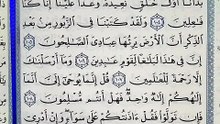 بَدَأْنَا أَوَّلَ خَلْقٍ نُّعِيدُهُ وَعْدًا عَلَيْنَا إِنَّا كُنَّا
فَاعِلِينَ ١٠٤ وَلَقَدْ كَتَبْنَا فِي الزَّبُورِ مِن بَعْدِ
الذِّكْرِ أَنَّ الْأَرْضَ يَرِثُهَا عِبَادِيَ الصَّالِحُونَ ١٠٥
إِنَّ فِي هَٰذَا لَبَلَاغًا لِّقَوْمٍ عَابِدِينَ ١٠٦ وَمَا أَرْسَلْنَاكَ
إِلَّا رَحْمَةً لِّلْعَالَمِينَ ١٠٧ قُلْ إِنَّمَا يُوحَىٰ إِلَيَّ أَنَّمَا
إِلَٰهُكُمْ إِلَٰهٌ وَاحِدٌ فَهَلْ أَنتُم مُّسْلِمُونَ ١٠٨
فَإِن تَوَلَّوْا فَقُلْ آذَنتُكُمْ عَلَىٰ سَوَاءٍ وَإِنْ أَدْرِي